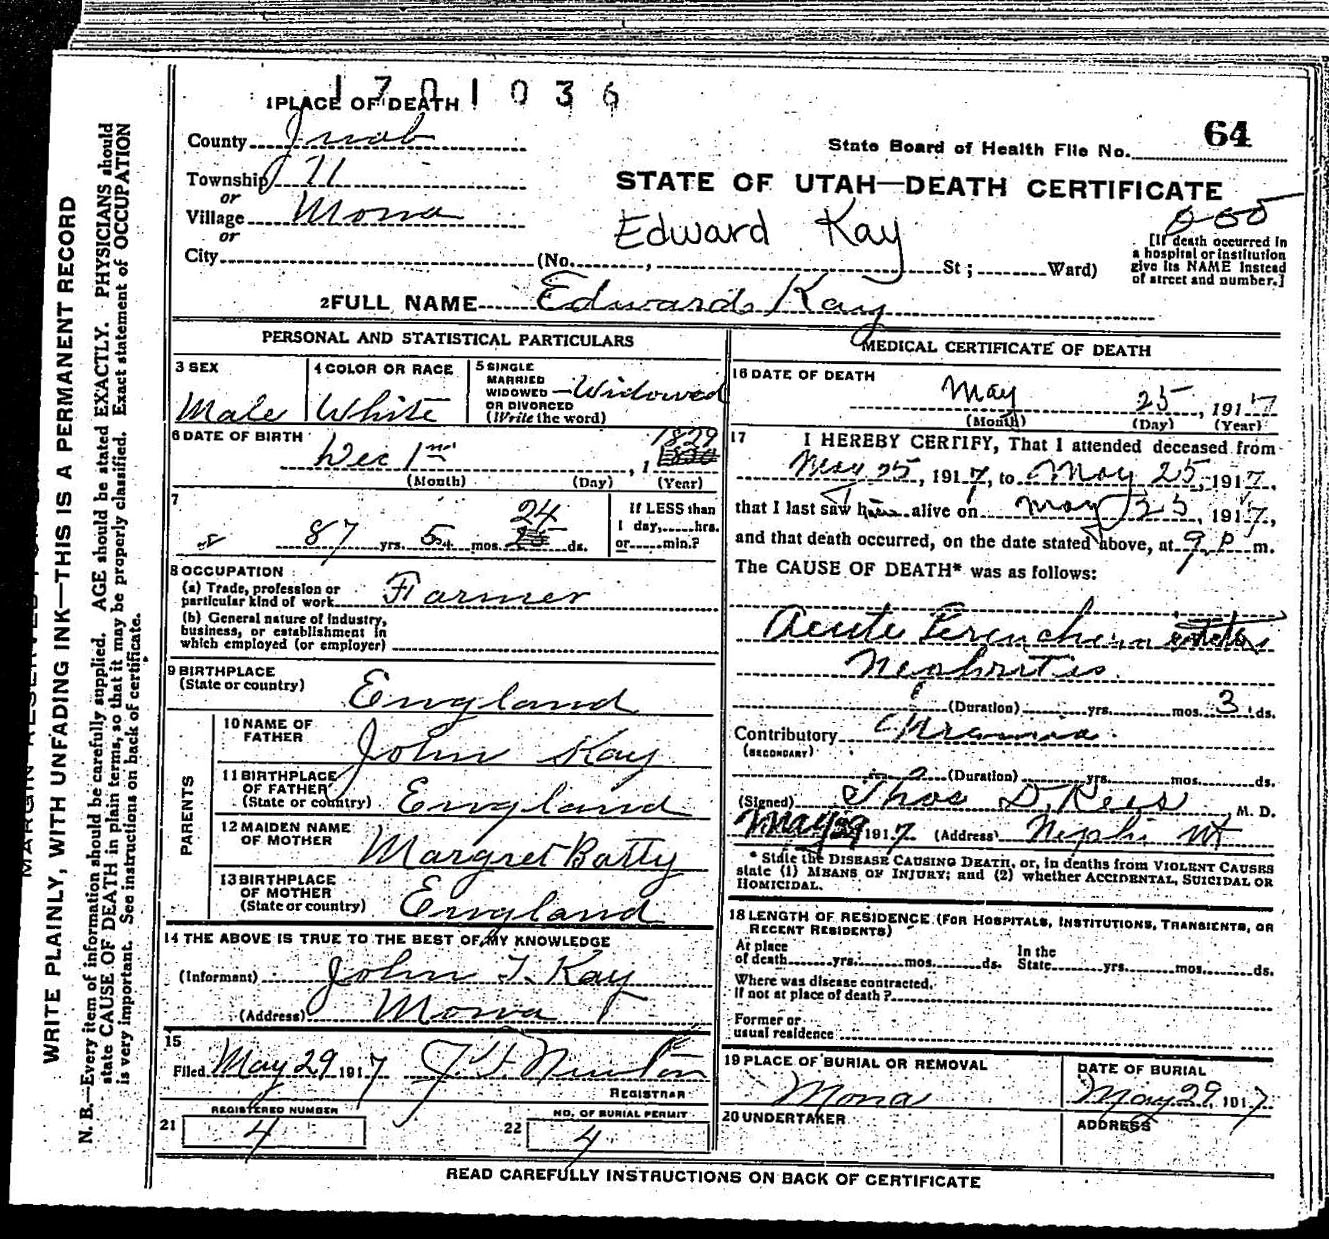 1701036
1 PLACE OF DEATH
County Juab
State Board of Health File No. 64
Township 11
STATE OF UTAH—DEATH CERTIFICATE
or
Village Mona
or
Edward Kay
City (No. , St ; Ward)
[If death occurred in
a hospital or institution
give its NAME instead
of street and number.]
2 FULL NAME Edward Kay
PERSONAL AND STATISTICAL PARTICULARS
3 SEX
Male
4 COLOR OR RACE
White
5 SINGLE
MARRIED
WIDOWED
OR DIVORCED
(Write the word)
Widowed
6 DATE OF BIRTH
Dec 1 , 1 1829
(Month) (Day) (Year)
7
87 yrs. 5 mos. 24 ds.
If LESS than
1 day, hrs.
or min.?
8 OCCUPATION
(a) Trade, profession or
particular kind of work Farmer
(b) General nature of industry,
business, or establishment in
which employed (or employer)
9 BIRTHPLACE
(State or country)
England
PARENTS
10 NAME OF
FATHER
John Kay
11 BIRTHPLACE
OF FATHER
(State or country) England
12 MAIDEN NAME
OF MOTHER
Margret Batty
13 BIRTHPLACE
OF MOTHER
(State or country) England
14 THE ABOVE IS TRUE TO THE BEST OF MY KNOWLEDGE
(Informant) John T. Kay
(Address) Mona
15
Filed May 29 1917 Newton
REGISTRAR
REGISTERED NUMBER
21 4
NO. OF BURIAL PERMIT
22 4
MEDICAL CERTIFICATE OF DEATH
16 DATE OF DEATH
May 25 , 1917
(Month) (Day) (Year)
17 I HEREBY CERTIFY, That I attended deceased from
May 25 , 1917, to May 25, 1917,
that I last saw him alive on May 25 , 1917,
and that death occurred, on the date stated above, at 9 P m.
The CAUSE OF DEATH* was as follows:
Acute
Nephritis
(Duration) yrs. mos. 3 ds.
Contributory
(SECONDARY)
(Duration) yrs. mos. ds.
(Signed) Thos D. Rees M. D.
May 29 1917 (Address) Nephi Ut
* State the DISEASE CAUSING DEATH, or, in deaths from VIOLENT CAUSES
state (1) MEANS OF INJURY; and (2) whether ACCIDENTAL, SUICIDAL OR
HOMICIDAL.
18 LENGTH OF RESIDENCE (FOR HOSPITALS, INSTITUTIONS, TRANSIENTS, OR
RECENT RESIDENTS)
At place
of death yrs. mos. ds.
In the
State yrs. mos. ds.
Where was disease contracted,
if not at place of death ?
Former or
usual residence
19 PLACE OF BURIAL OR REMOVAL
Mona
DATE OF BURIAL
May 29, 1917
20 UNDERTAKER
ADDRESS
READ CAREFULLY INSTRUCTIONS ON BACK OF CERTIFICATE
WRITE PLAINLY, WITH UNFADING INK—THIS IS A PERMANENT RECORD
N. B.—Every item of information should be carefully supplied. AGE should be stated EXACTLY. PHYSICIANS should
state CAUSE OF DEATH in plain terms, so that it may be properly classified. Exact statement of OCCUPATION
is very important. See instructions on back of certificate.